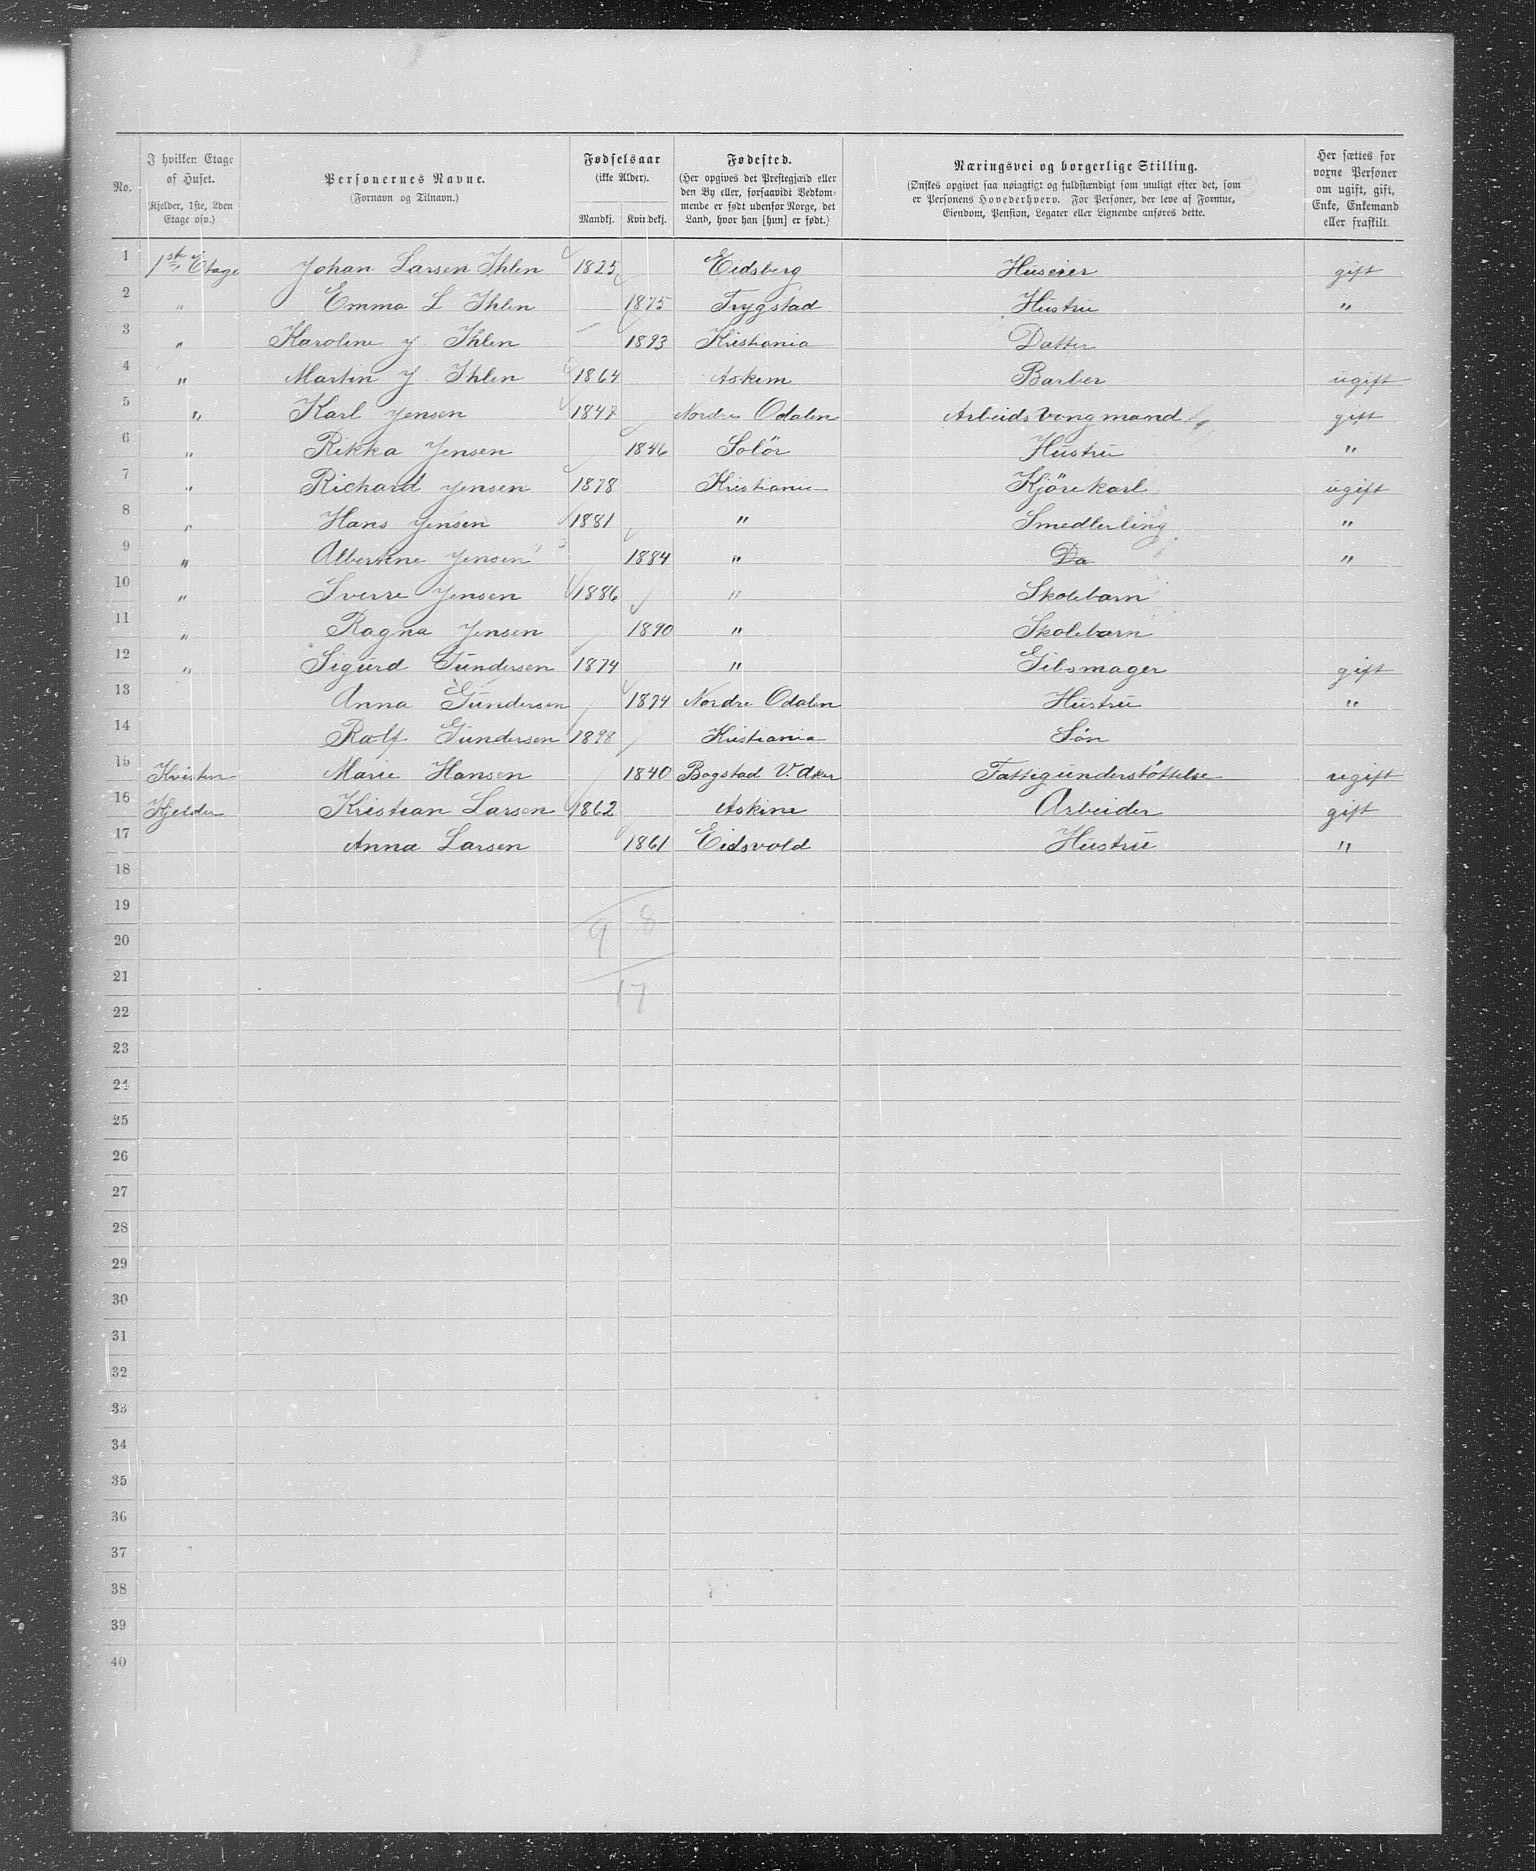 No.
I hvilken Etage af Huset.
(Kjelder, 1ste, 2den Etage osv.)
Personernes Navne.
(Fornavn og Tilnavn.)
Fødselsaar
(ikke Alder).
Mandkj.
Kvindekj.
Fødested.
(Her opgives det Prestegjæld eller
den By eller, forsaavidt Vedkom=
mende er født udenfor Norge, det
Land, hvor han [hun] er født.)
Næringsvei og borgerlige Stilling.
(Ønskes opgivet saa nøiagtigt og fuldstændigt som muligt efter det, som
er Personens Hovederhverv. For Personer, der leve af Formue,
Eiendom, Pension, Legater eller Lignende anføres dette.
Her sættes for
voxne Personer
om ugift, gift,
Enke, Enkemand
eller fraskilt.
1 1ste Etage Johan Larsen Ihlen 1825 Eidsberg Huseier gift
2 " Emma L Ihlen 1875 Trygstad Hustru "
3 " Karoline J. Ihlen 1893 Kristiania Datter
4 " Martin J. Ihlen 1864 Askim Barber ugift
5 " Karl Jensen 1847 Nordre Odalen Arbeids Vongmand gift
6 " Rikka Jensen 1846 Solör Hustru "
7 " Richard Jensen 1878 Kristiania Kjörekarl ugift
8 " Hans Jensen 1881 " Smedlerling "
9 " Albertine Jensen 1884 " Do "
10 " Sverre Jensen 1886 " Skolebarn
11 " Ragna Jensen 1890 " Skolebarn
12 " Sigurd Gundersen 1874 " Gibsmager gift
13 Anna Gundersen 1874 Nordre Odalen Hustru "
14 Rolf Gundersen 1898 Kristiania Sön
15 Kvisten Marie Hansen 1840 Bogstad V. Aker Fattigunderstøttelse ugift
16 Kjelder Kristian Larsen 1862 Askim Arbeider gift
17 Anna Larsen 1861 Eidsvold Hustru "
18
19
9 8
20
21
17
22
23
24
25
26
27
28
29
30
31
32
33
34
35
36
37
38
39
40